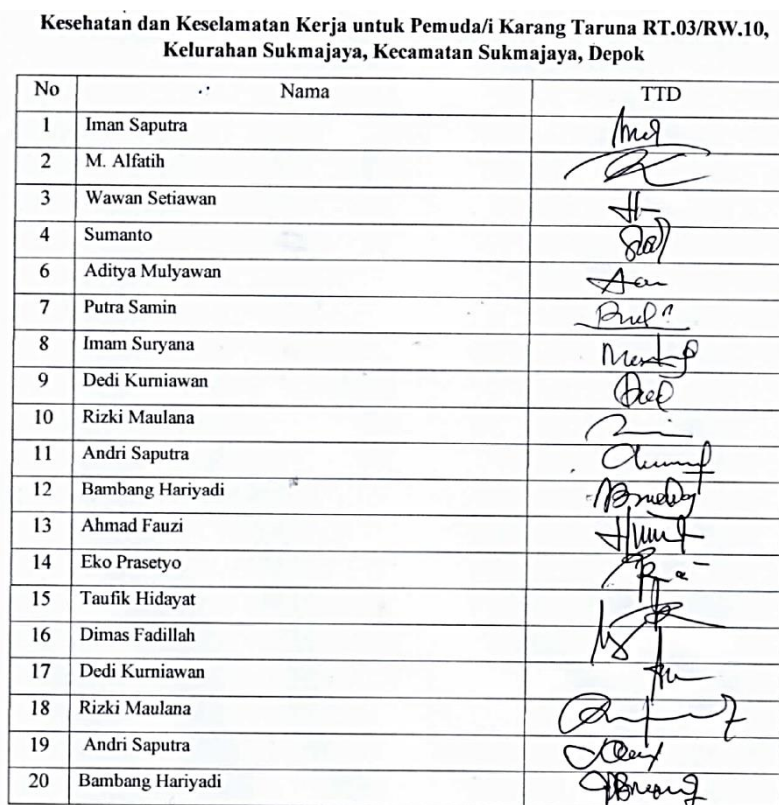 Kesehatan dan Keselamatan Kerja untuk Pemuda/i Karang Taruna RT.03/RW.10,
Kelurahan Sukmajaya, Kecamatan Sukmajaya, Depok
No Nama TTD
1 Iman Saputra
2 M. Alfatih
3 Wawan Setiawan
4 Sumanto
6 Aditya Mulyawan
7 Putra Samin
8 Imam Suryana
9 Dedi Kurniawan
10 Rizki Maulana
11 Andri Saputra
12 Bambang Hariyadi
13 Ahmad Fauzi
14 Eko Prasetyo
15 Taufik Hidayat
16 Dimas Fadillah
17 Dedi Kurniawan
18 Rizki Maulana
19 Andri Saputra
20 Bambang Hariyadi